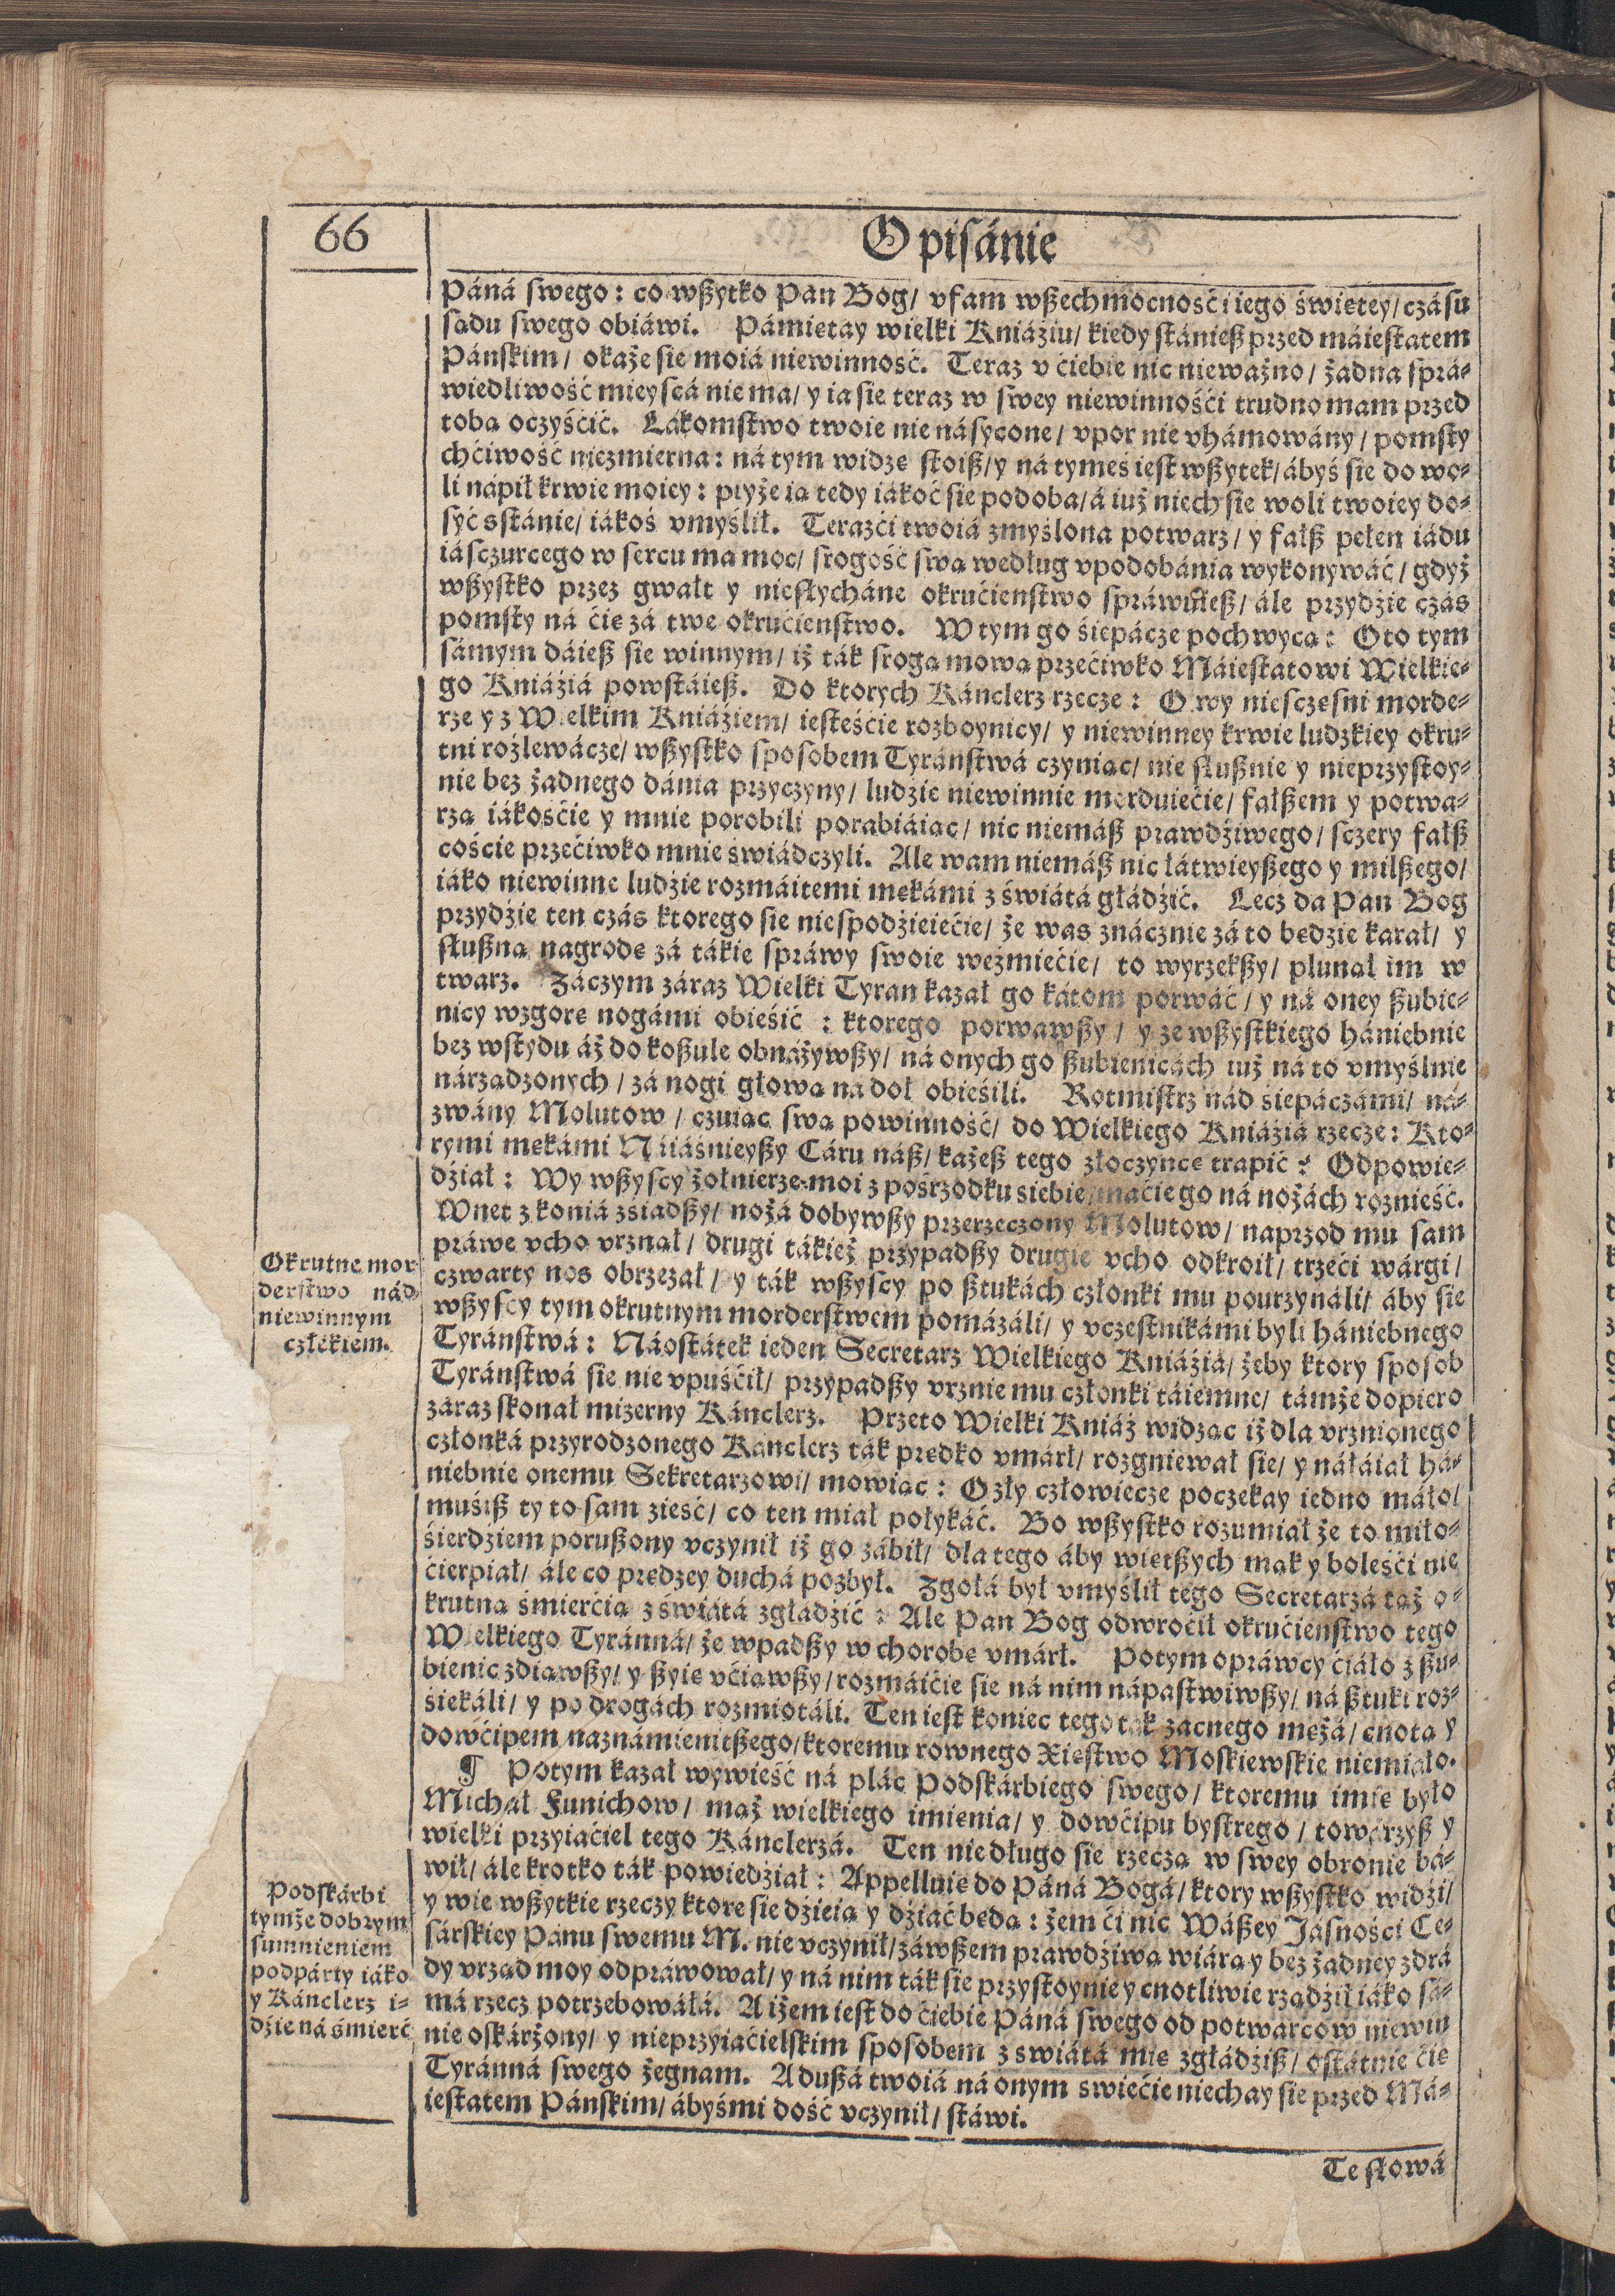 66
Opisánie
Páná swego: co wßytko Pan Bog/ vfam wßechmocnośći iego świętey/ czásu
sądu swego obiáwi. Pámiętay wielki Kniáźiu/ kiedy stánieß przed máiestatem
Páńskim/ okaże się moiá niewinność. Teraz v ćiebie nic nieważno/ żadna sprá-
wiedliwość mieyscá nie ma/ y ia się teraz w swey niewinnośći trudno mam przed
tobą oczyśćić. Łákomstwo twoie nie násycone/ vpor nie vhámowány/ pomsty
chćiwość niezmierna: ná tym widzę stoiß/ y ná tymeś iest wßytek/ ábyś się do wo-
li nápił krwie moiey: pijże ią tedy iákoć się podoba/ á iuż niech się woli twoiey do-
syć sstánie/ iákoś vmyślił. Terazći twoiá zmyślona potwarz/ y fałß pełen iádu
iásczurcego w sercu ma moc/ srogość swą według vpodobánia wykonywáć/ gdyż
wßystko przez gwałt y niesłycháne okrućieństwo spráwuieß/ ále przydźie czás
pomsty ná ćię zá twe okrućieństwo. W tym go śiepácze pochwycą: Oto tym
sámym dáieß się winnym/ iż ták srogą mową przećiwko Máiestatowi Wielkie-
go Kniáźiá powstáieß. Do ktorych Kánclerz rzecze: O wy niesczęsni morde-
rze y z Wielkim Kniáźiem/ iesteśćie rozboynicy/ y niewinney krwie ludzkiey okru-
tni rozlewácze/ wßystko sposobem Tyráństwá czyniąc/ nie słußnie y nieprzystoy-
nie bez żadnego dánia przyczyny/ ludźie niewinnie morduiećie/ fałßem y potwa-
rzą iákośćie y mnie porobili porabiáiąc/ nic niemáß prawdźiwego/ sczery fałß
cośćie przećiwko mnie świádczyli. Ale wam niemáß nic łátwieyßego y milßego/
iáko niewinne ludźie rozmáitemi mękámi z świátá głádźić. Lecz da Pan Bog
przydźie ten czás ktorego się niespodźieiećie/ że was znácznie zá to będzie karał/ y
słußną nagrodę zá tákie spráwy swoie weźmiećie/ to wyrzekßy/ plunął im w
twarz. Záczym záraz Wielki Tyran kazał go kátom porwáć/ y ná oney ßubie-
nicy wzgorę nogámi obieśić: ktorego porwawßy/ y ze wßystkiego hániebnie
bez wstydu áż do koßule obnażywßy/ ná onych go ßubienicách iuż ná to vmyślnie
nárządzonych/ zá nogi głową na doł obieśili. Rotmistrz nád śiepáczámi/ ná-
zwány Molutow/ czuiąc swą powinność/ do Wielkiego Kniáźiá rzecze: Kto-
rymi mękámi Náiáśnieyßy Cáru náß/ każeß tego złoczyńcę trapić? Odpowie-
dźiał: Wy wßyscy żołnierze moi z pośrzodku siebie/ maćie go ná nożách roznieść.
Wnet z koniá zsiadßy/ nożá dobywßy przerzeczony Molutow/ naprzod mu sam
práwe vcho vrznął/ drugi tákież przypadßy drugie vcho odkroił/ trzeći wárgi/
czwarty nos obrzezał/ y ták wßyscy po ßtukách członki mu pourzynáli/ áby się
wßyscy tym okrutnym morderstwem pomázáli/ y vczestnikámi byli hániebnego
Tyráństwá: Náostátek ieden Secretarz Wielkiego Kniáźiá/ żeby ktory sposob
Tyráństwá się nie vpuśćił/ przypadßy vrznie mu członki táiemne/ támże dopiero
záraz skonał mizerny Kánclerz. Przeto Wielki Kniáź widząc iż dla vrznionego
członká przyrodzonego Kánclerz ták prędko vmárł/ rozgniewał się/ y náłáiał há-
niebnie onemu Sekretarzowi/ mowiąc: O zły człowiecze poczekay iedno máło/
muśiß ty to sam zieść/ co ten miał połykáć. Bo wßystko rozumiał że to miło-
śierdziem porußony vczynił iż go zábił/ dla tego áby więtßych mąk y boleśći nie
ćierpiał/ ále co prędzey duchá pozbył. Zgołá był vmyślił tego Secretarzá tąż o-
krutną śmierćią z świátá zgłádźić: Ale Pan Bog odwroćił okrućieństwo tego
Wielkiego Tyránná/ że wpadßy w chorobę vmárł. Potym opráwcy ćiáło z ßu-
bienic zdiąwßy/ y ßyię vćiąwßy/ rozmáićie się ná nim nápastwiwßy/ ná ßtuki roz-
śiekáli/ y po drogách rozmiotáli. Ten iest koniec tego tak zacnego mężá/ cnotą y
dowćipem naznámienitßego/ ktoremu rownego Xięstwo Moskiewskie niemiáło.
¶ Potym kazał wywieść ná plác Podskárbiego swego/ ktoremu imię było
Michał Funichow/ mąż wielkiego imienia/ y dowćipu bystrego/ towárzyß y
wielki przyiaćiel tego Kánclerzá. Ten niedługo się rzeczą w swey obronie bá-
wił/ ále krotko ták powiedźiał: Appelluię do Páná Bogá/ ktory wßystko widźi/
y wie wßytkie rzeczy ktore się dźieią y dźiać będą: żem ći nic Wáßey Jásnośći Ce-
sárskiey Pánu swemu M. nie vczynił/ záwßem prawdźiwą wiárą y bez żadney zdrá
dy vrząd moy odpráwował/ y ná nim ták się przystoynie y cnotliwie rządźił iáko sá-
má rzecz potrzebowáłá. A iżem iest do ćiebie Páná swego od potwarcow niewin
nie oskárżony/ y nieprzyiaćielskim sposobem z świátá mię zgłádźiß/ ostátnie ćię
Tyránná swego żegnam. A dußá twoiá ná onym świećie niechay się przed Má-
iestatem Páńskim/ ábyśmi dość vczynił/ stáwi.
Te słowá
Okrutne mor-
derstwo nád
niewinnym
człékiem.
Podskárbi
tymże dobrym
sumnieniem
podpárty iáko
y Kánclerz i-
dźie ná śmierć